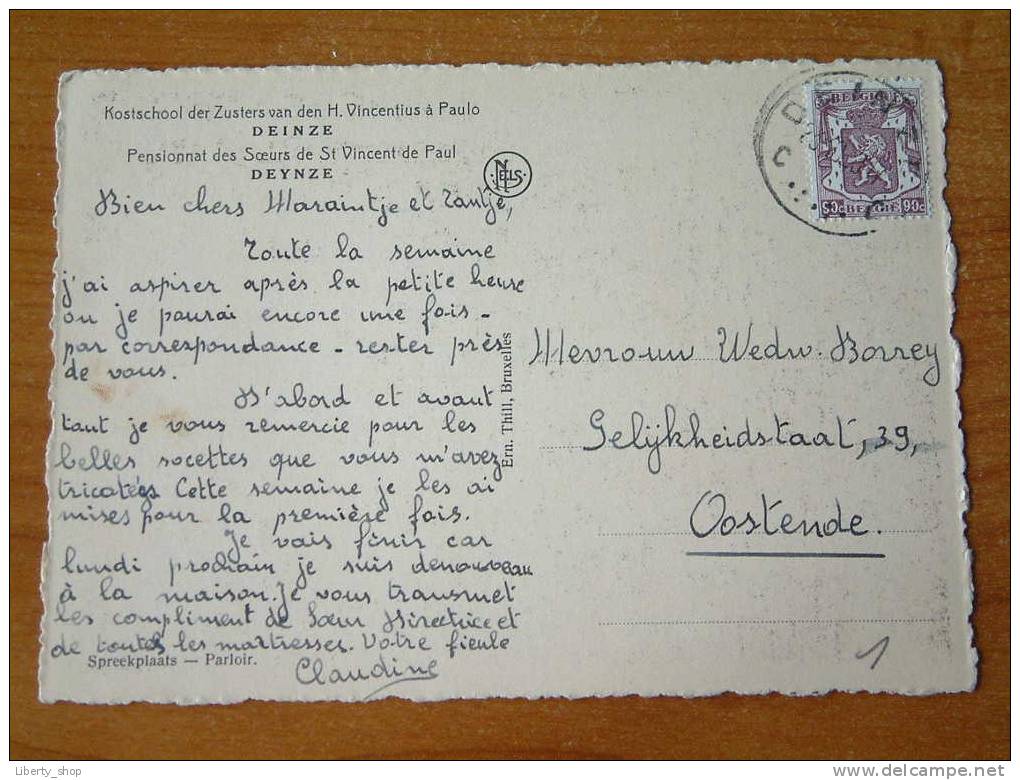 Kostschool der Zusters van den H. Vincentius à Paulo
DEINZE
Pensionnat des Sœurs de St Vincent de Paul
DEYNZE
NELS
Bien chers Maraintje et Tantje,
Toute la semaine
j'ai aspirer après la petite heure
ou je pourai encore une fois -
par correspondance - rester près
de vous.
D'abord et avant
tant je vous remercie pour les
belles socettes que vous m'avez
tricotées Cette semaine je les ai
mises pour la première fois.
Je vais finir car
lundi prochain je suis denouveau
à la maison. Je vous transmet
les compliment de Sœur Directrice et
de toutes les maîtresses. Votre fieule
Claudine
Spreekplaats — Parloir.
Ern. Thill, Bruxelles
BELGIQUE
90c BELGIE 90c
Mevrouw Wedw. Borrey
Gelijkheidstaat, 39,
Oostende.
1
Liberty_shop
www.delcampe.net